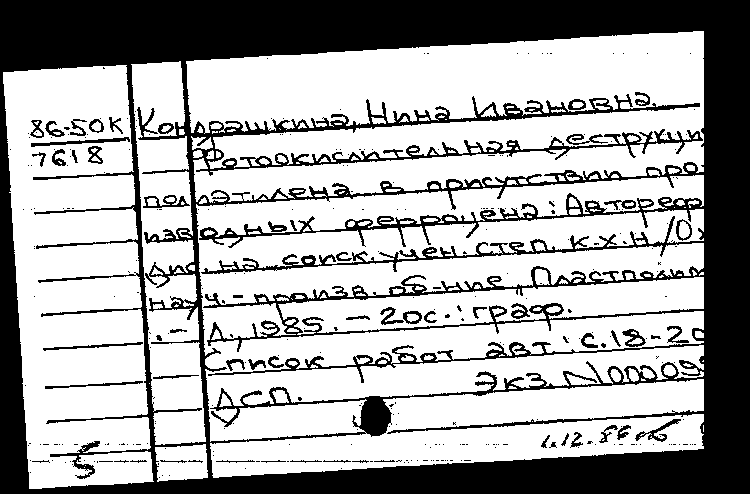 86-50К Кондрашкина, Нина Ивановна.
7618 Фотоокислительная деструкци
полиэтилена в присутствии про
изводных ферроцена: Автореф
дис. на соиск. учен. степ. к.х.н. /Ох
науч.-произв. об-ние „Пластполим
.- Л., 1985. - 20с.: граф.
Список работ авт.: с.18-20
ДСП. Экз. N00009
5 1.12.86